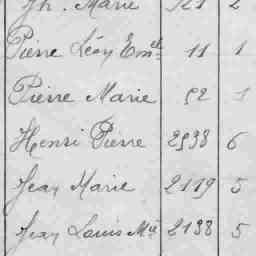 Jh. Marie 521 2
Pierre Léon Emel 11 1
Pierre Marie 52 1
Henri Pierre 2538 6
Jean Marie 2119 5
Jean Louis Mie 2138 5